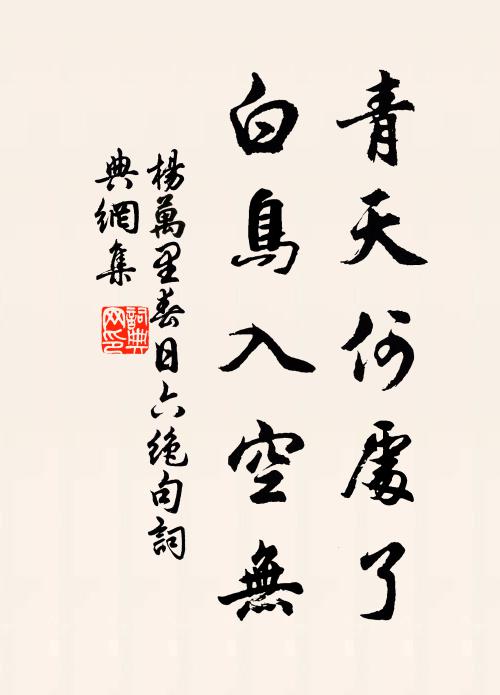 青天何處了
白鳥入空無
楊萬里春日六絶句詞
典網集
詞典
网印